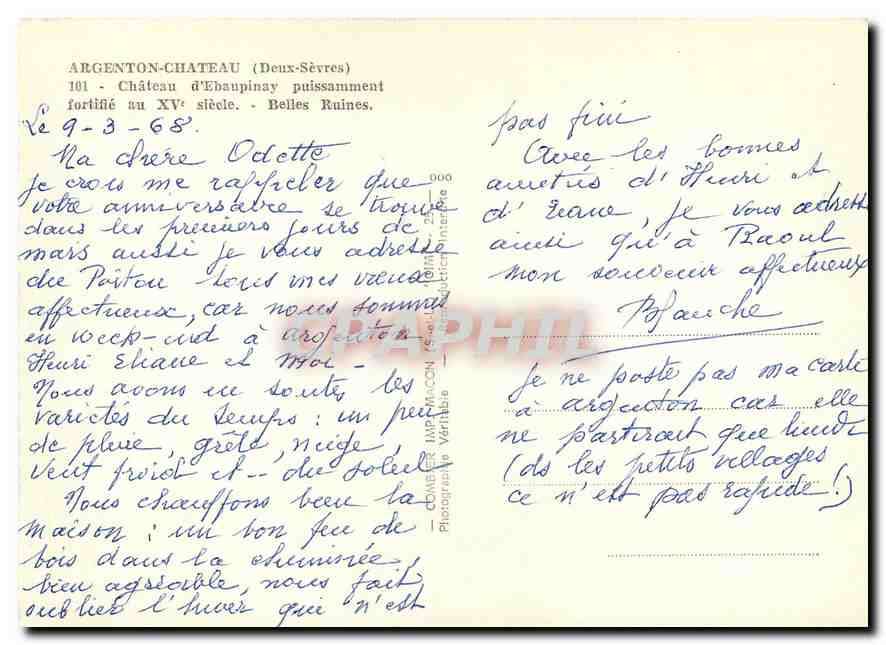 ARGENTON-CHATEAU (Deux-Sèvres)
101 - Château d'Ebaupinay puissamment
fortifié au XVe siècle. - Belles Ruines.
Le 9-3-68.
Ma chère Odette
je crois me rappeler que
votre anniversaire se trouve
dans les premiers jours de
mars aussi je vous adresse
du Poitou tous mes vœux
affectueux, car nous sommes
en week-end à argenton
Henri Eliane et moi -
Nous avons eu toutes les
variétés du temps : un peu
de pluie, grêle, neige,
vent froid et -- du soleil
Nous chauffons bien la
maison : un bon feu de
bois dans la cheminée,
bien agréable, nous fait
oublier l'hiver qui n'est
— COMBIER IMP. MACON
Photographie Véritable - Reproduction Interdite
PAPHIL
pas fini
Avec les bonnes
amitiés d'Henri et
d'Eliane, je vous adresse
ainsi qu'à Raoul
mon souvenir affectueux
Blanche
Je ne poste pas ma carte
à argenton car elle
ne partirait que lundi
(ds les petits villages
ce n'est pas rapide !)